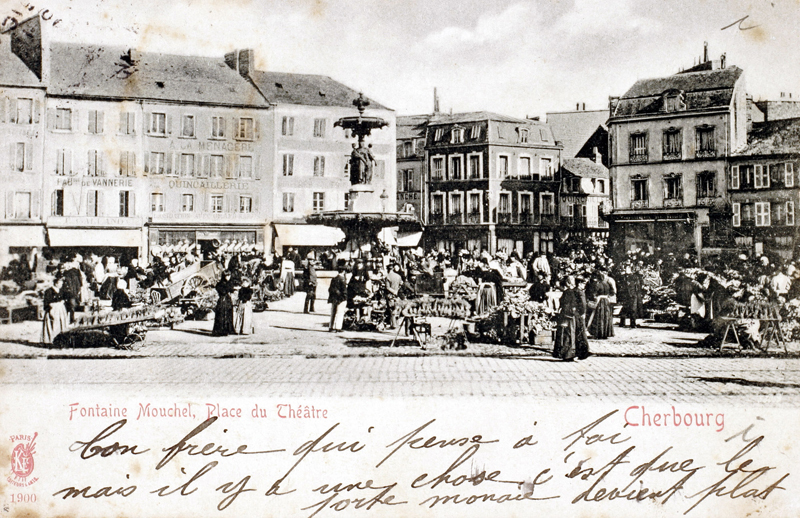 A LA MÉNAGÈRE
FABque DE VANNERIE
QUINCAILLERIE
Fontaine Mouchel, Place du Théâtre
Cherbourg
PARIS
1900
Ton frère qui pense à toi
mais il y a une chose c'est que le
porte monaie devient plat